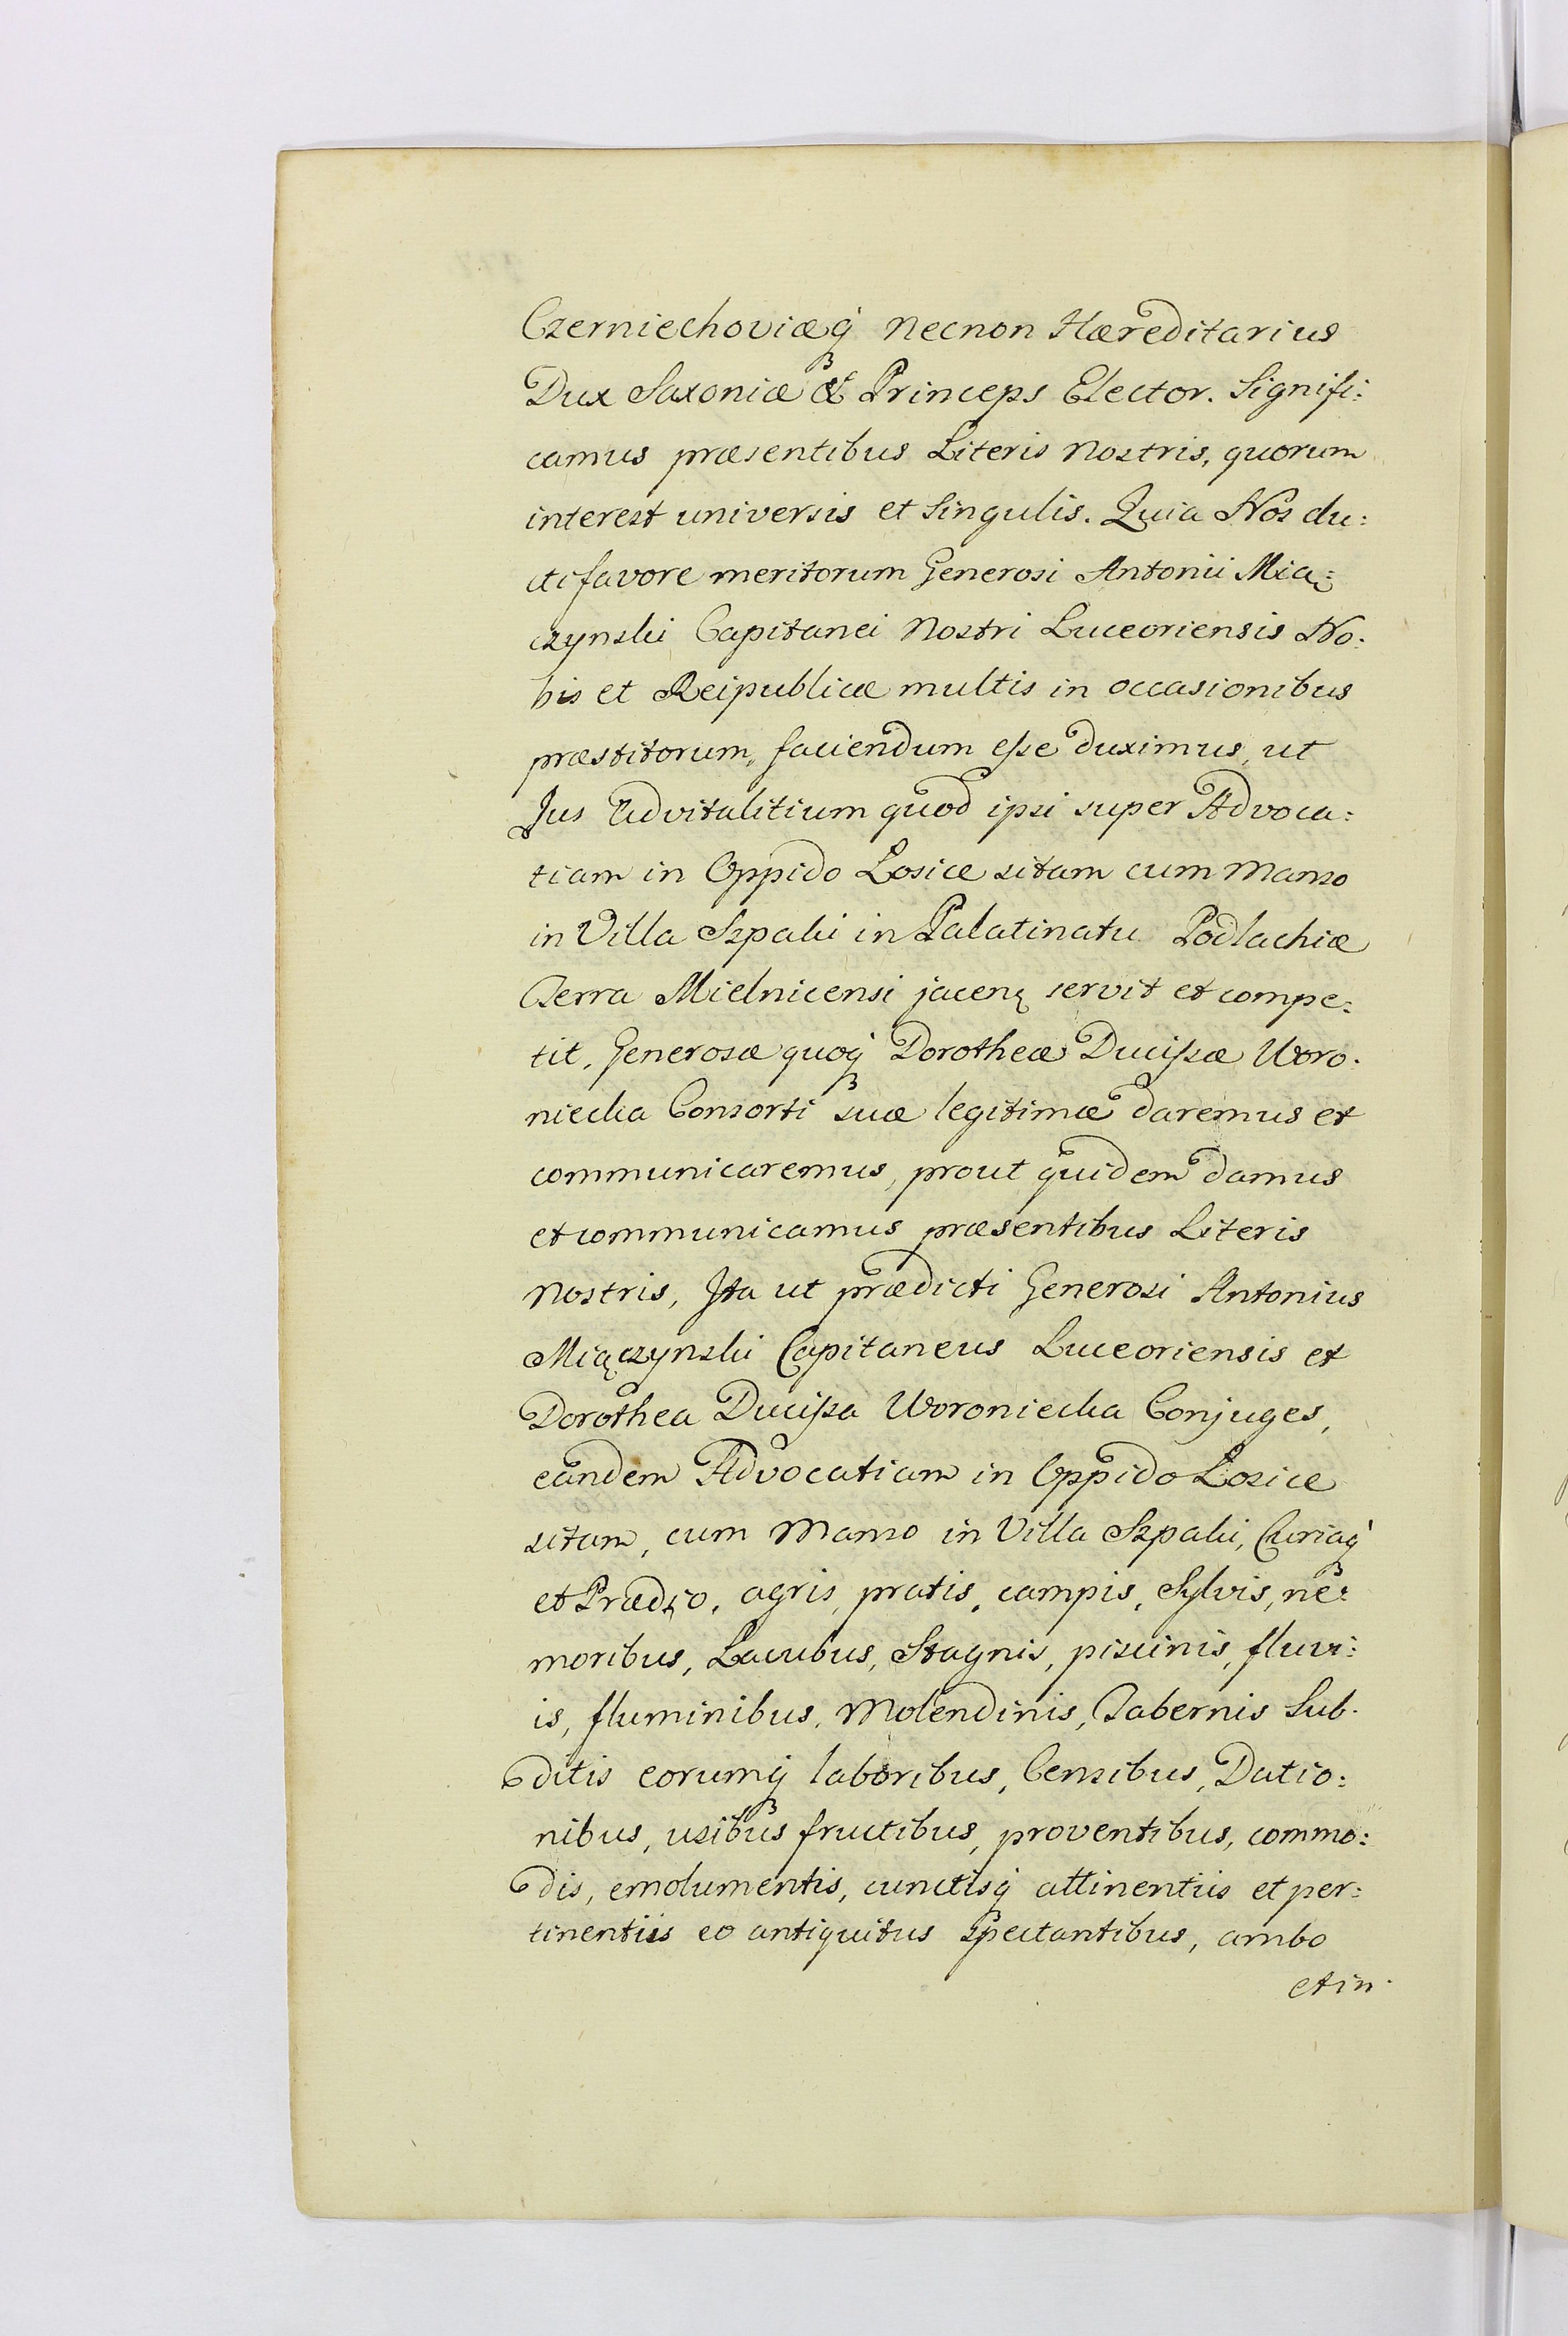 Czerniechoviæq́ necnon Hæreditarius
Dux Saxoniæ & Princeps Elector. Signifi:
camus præsentibus Literis Nostris, quorum
interest universis et Singulis. Quia Nos du:
cti favore meritorum Generosi Antonii Mią:
czynski Capitanei Nostri Luceoriensis No:
bis et Reipublicæ multis in occasionibus
præstitorum, faciendum esse duximus, ut
Jus Advitalitium quod ipsi super Advoca:
tiam in Oppido Łosice sitam cum Manso
in Villa Szpaki in Palatinatu Podlachiæ
Terra Mielnicensi jacenꝗ servit et compe:
tit, Generosæ quoq́ Dorotheæ Ducissæ Woro:
niecka Consorti suæ legitimæ daremus et
communicaremus, prout quidem damus
et communicamus præsentibus Literis
Nostris, Ita ut prædicti Generosi Antonius
Miączynski Capitaneus Luceoriensis et
Dorothea Ducissa Woroniecka Conjuges,
eandem Advocatiam in Oppido Łosice
sitam, cum Manso in Villa Szpaki, Curiaq́
et Prædio, agris, pratis, campis, Sylvis, ne:
moribus, Lacubus, Stagnis, piscinis, fluvi:
is, fluminibus, Molendinis, Tabernis Sub:
ditis eorumq́ laboribus, Censibus, Datio:
nibus, usibus fructibus, proventibus, commo:
dis, emolumentis, cunctisq́ attinentiis et per:
tinentiis eo antiquitus spectantibus, ambo
et in: